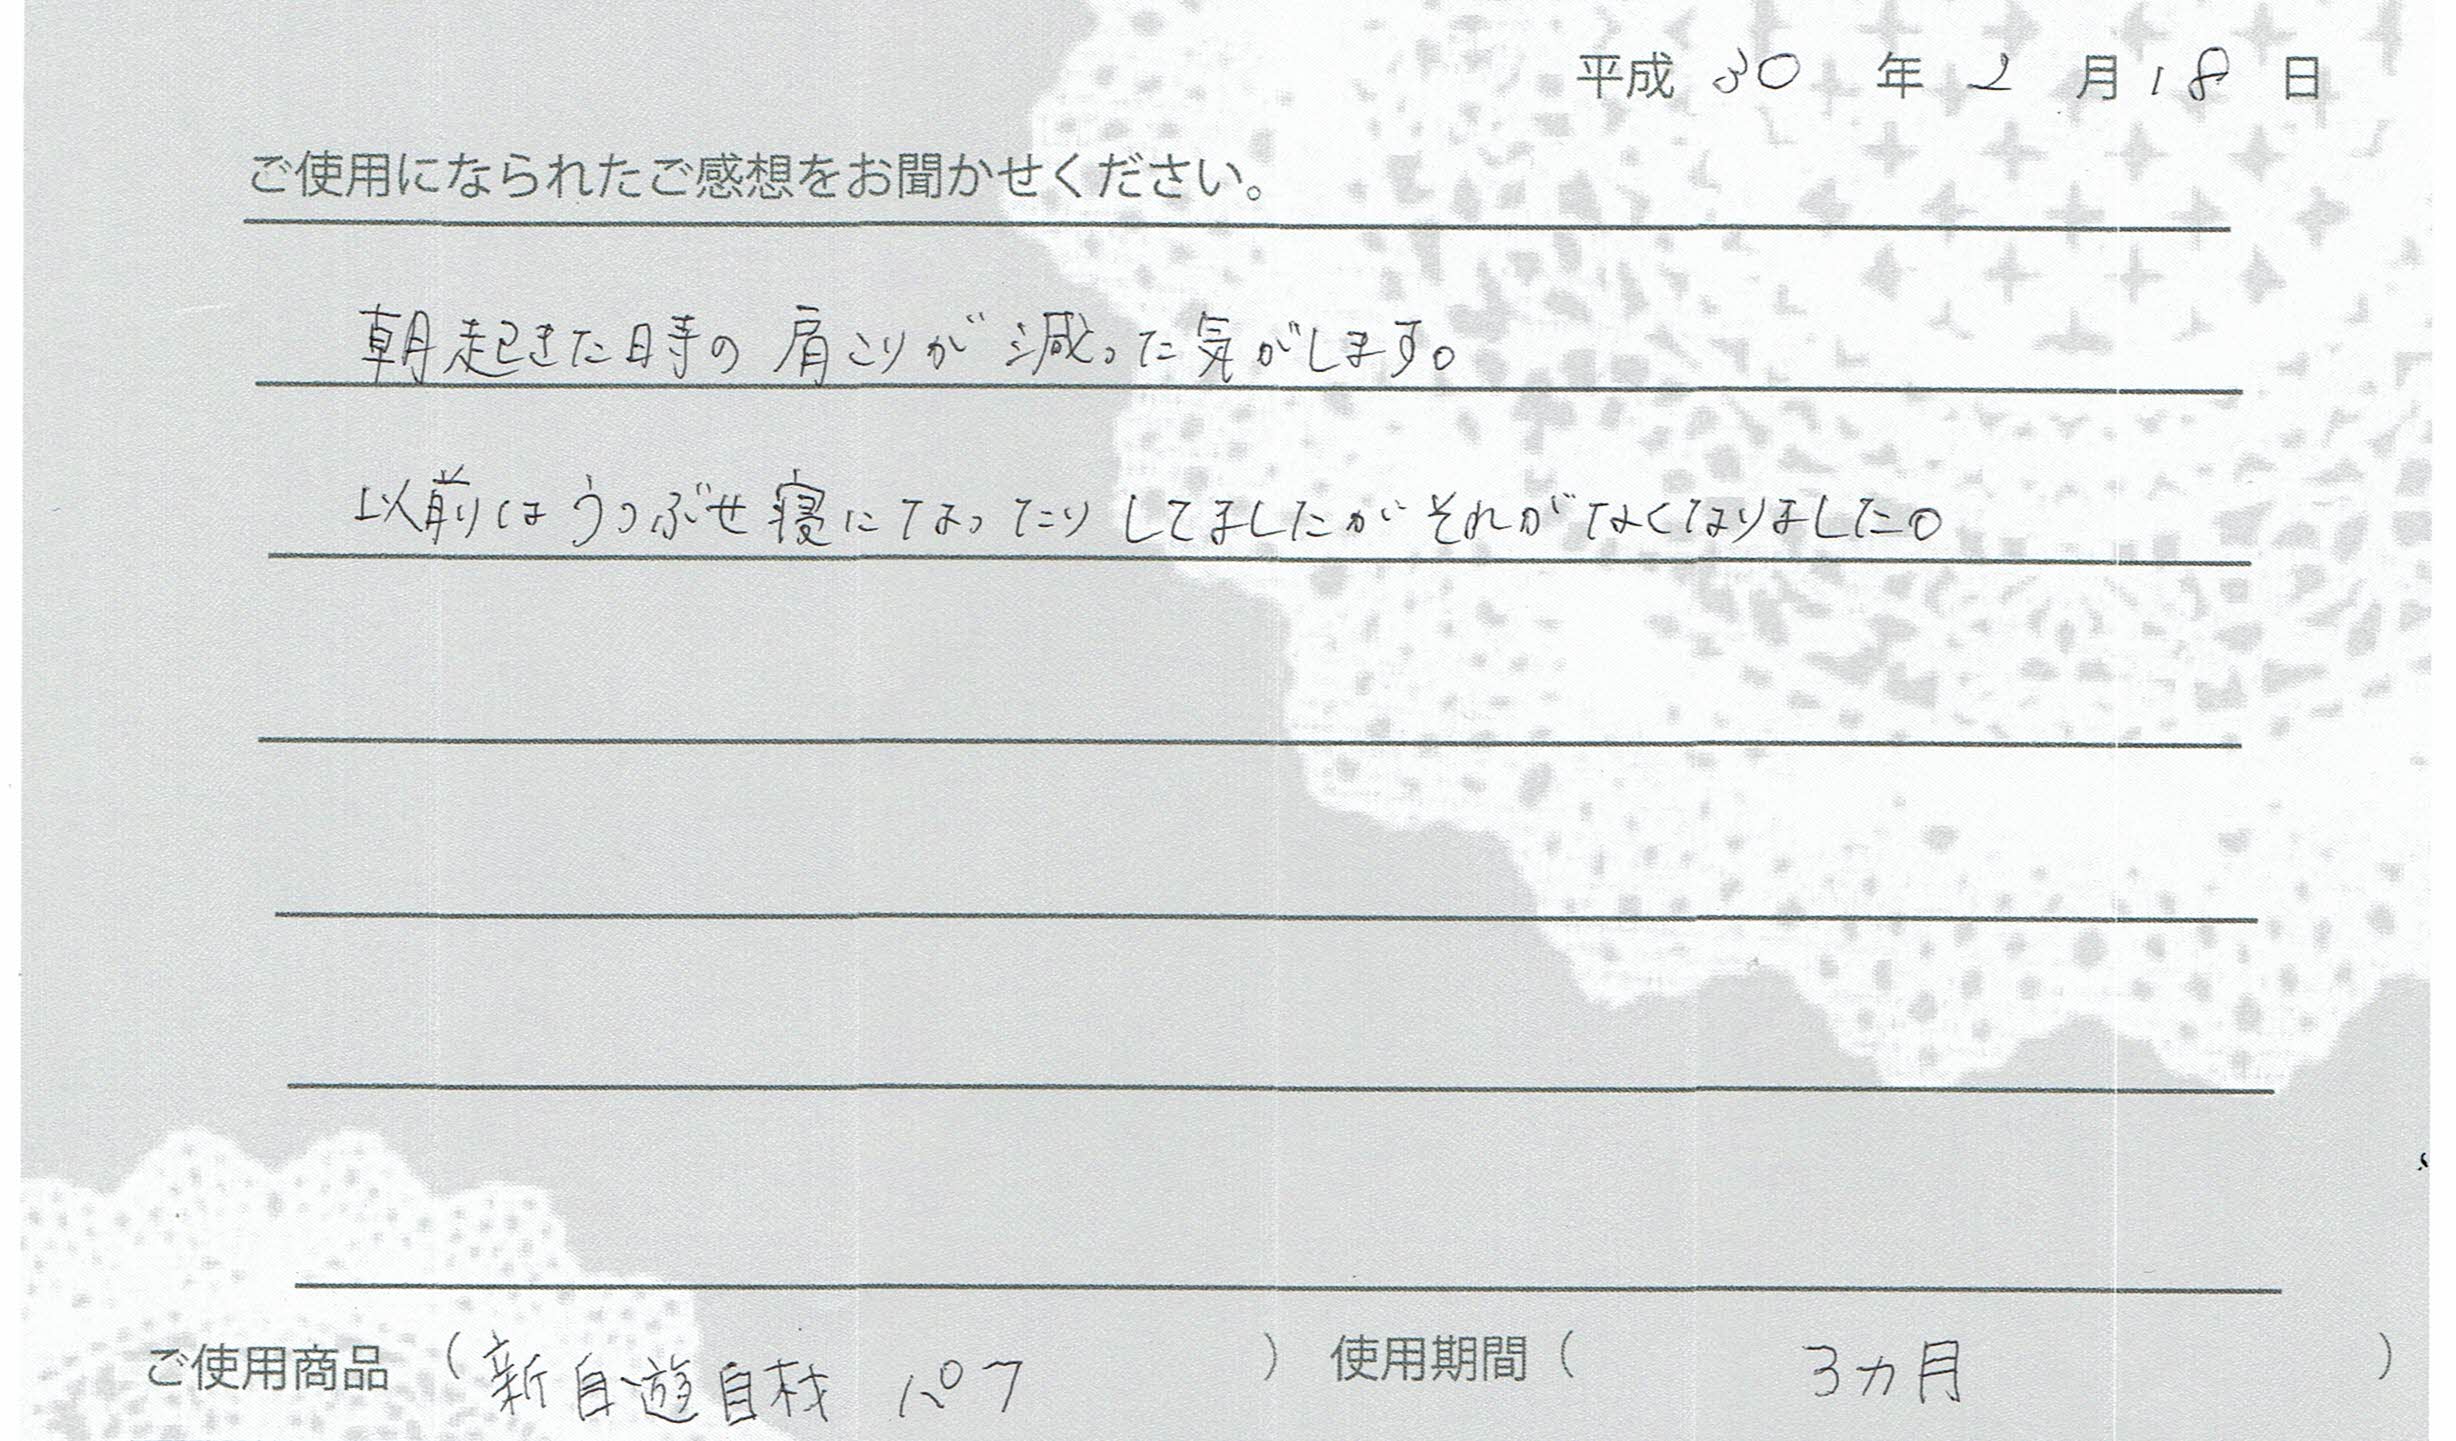 平成 30 年 2 月 18 日
ご使用になられたご感想をお聞かせください。
朝起きた時の肩こりが減った気がします。
以前はうつぶせ寝になったりしてましたがそれがなくなりました。
ご使用商品 (新自遊自材 パフ) 使用期間 ( 3カ月 )